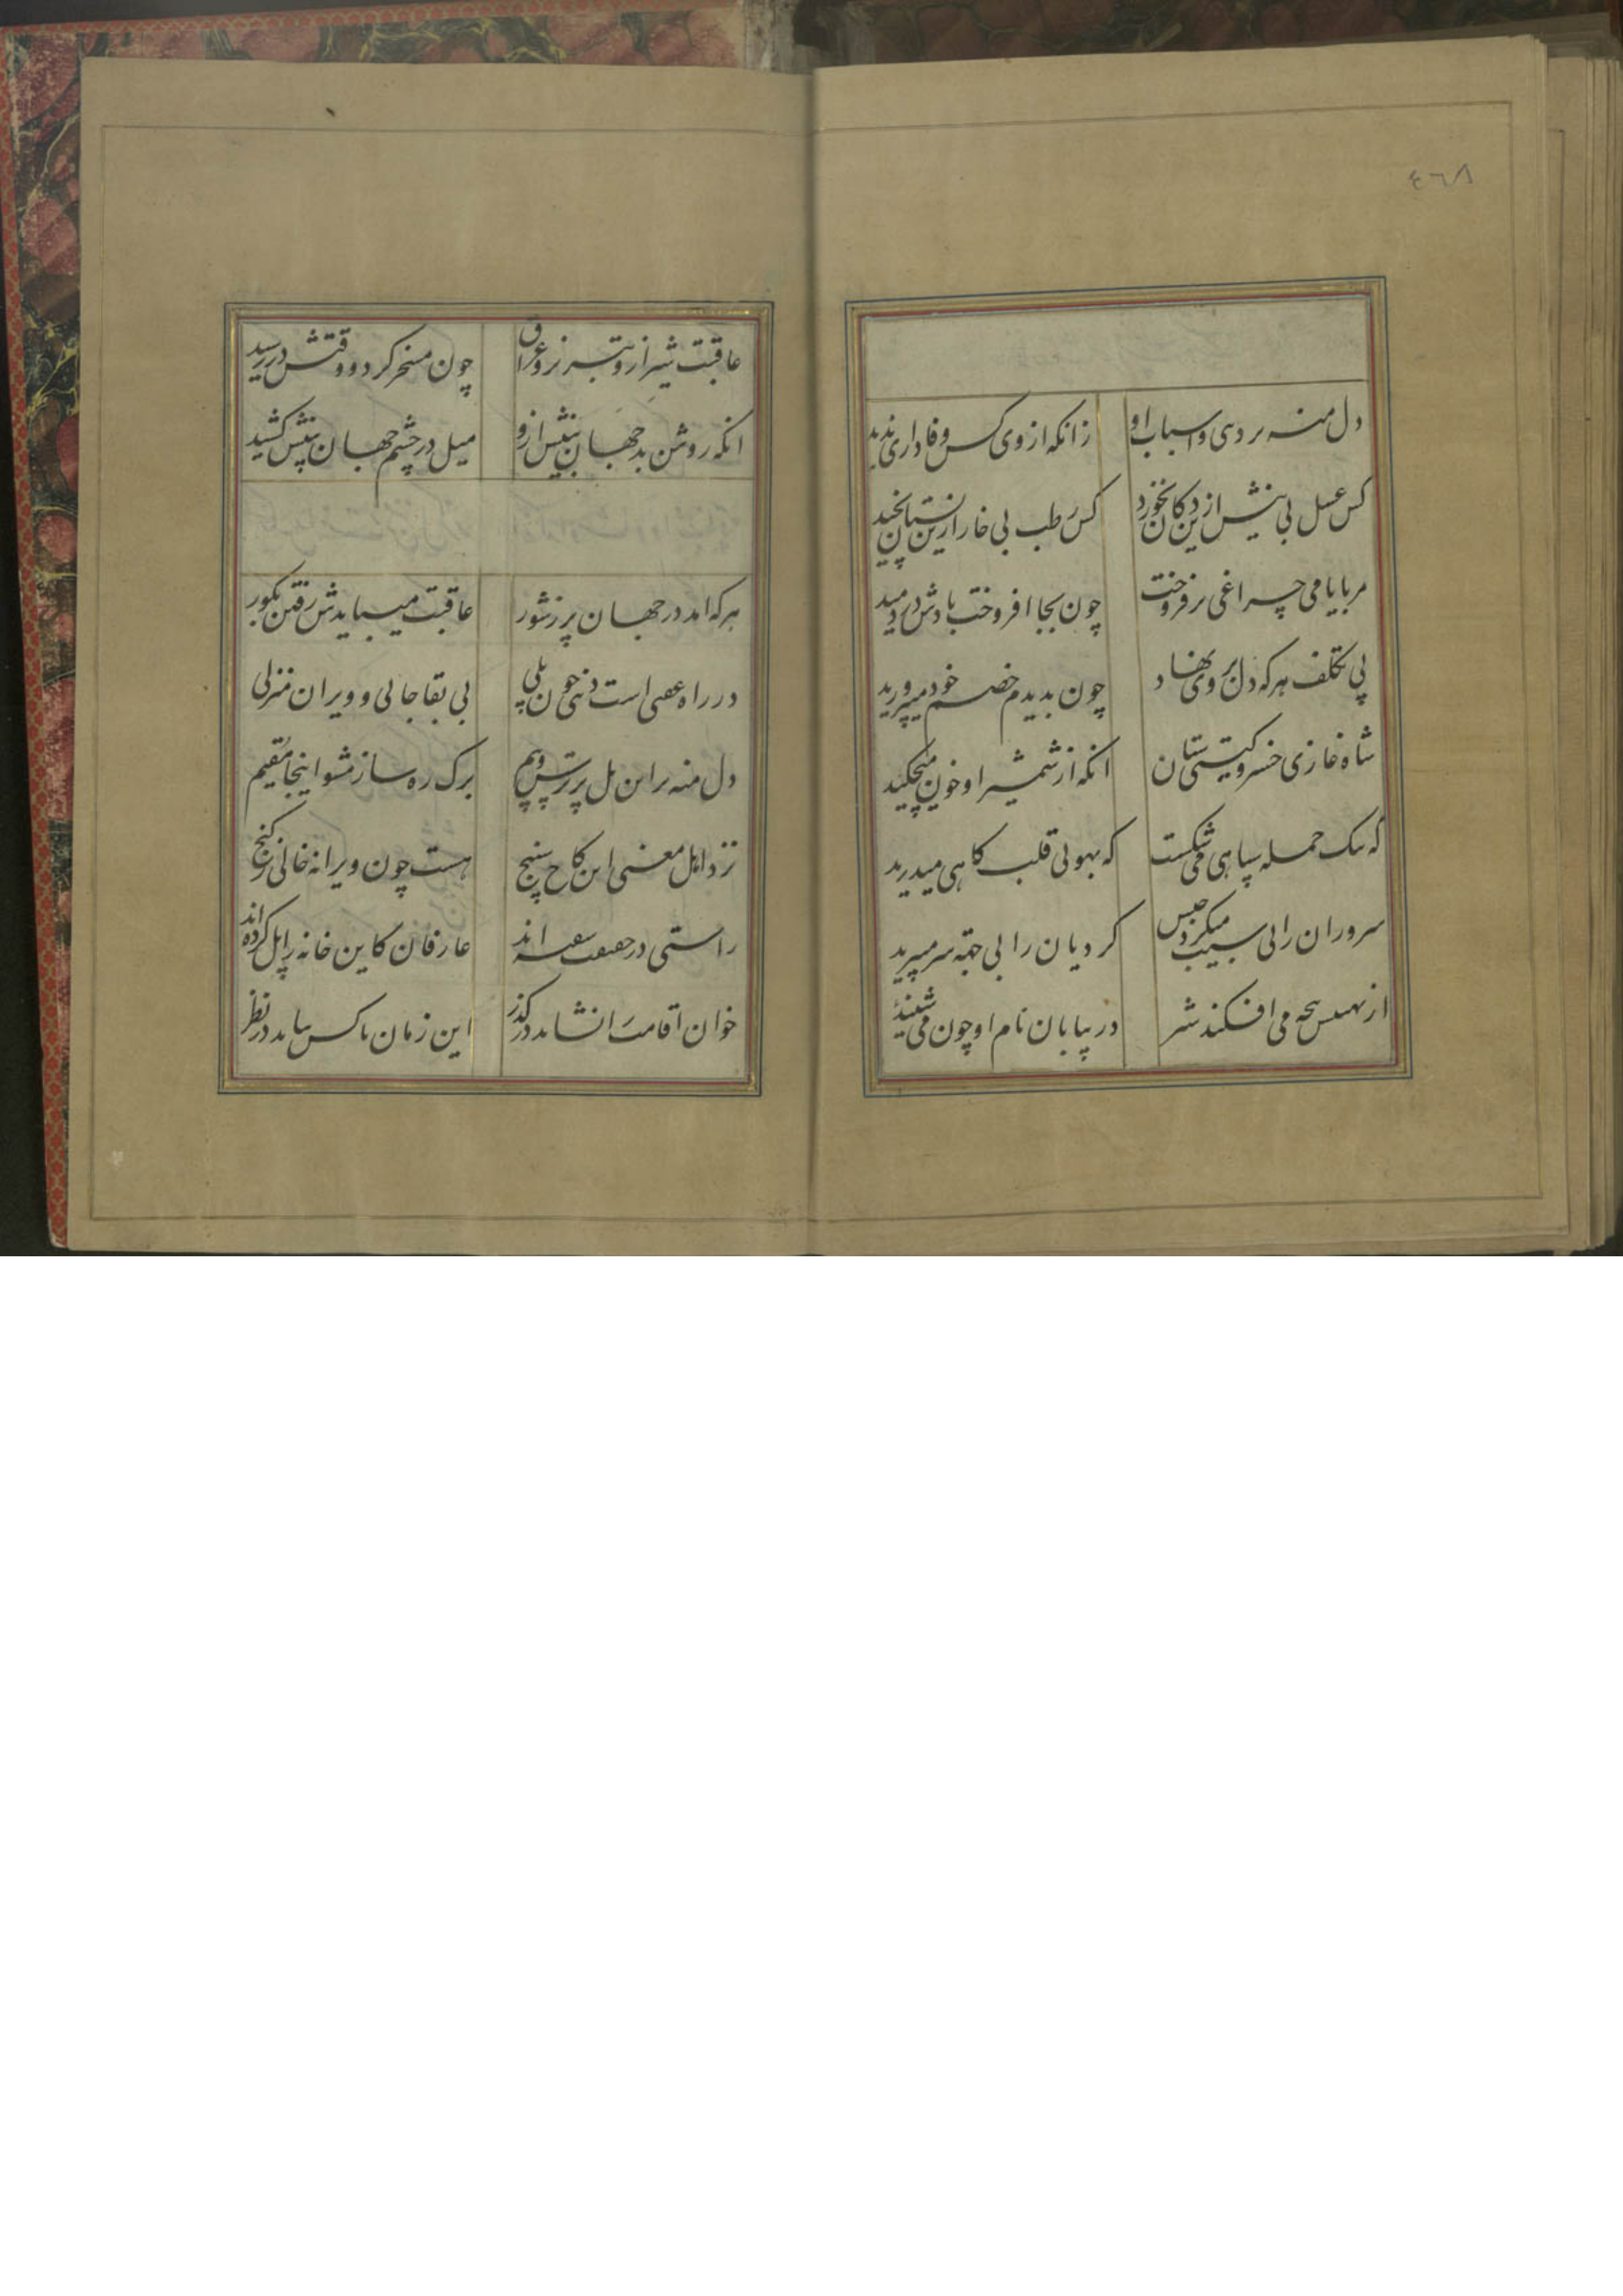 ٤٦٨
دل منه بر دنیی و اسباب او
زانکه از وی کس وفاداری ندید
کس عسل بی نیش ازین دکان نخورد
کس رطب بی خار ازین بستان نچید
هر بایامی چراغی بر فروخت
چون بجا افروخت بادش در دمید
بی تکلف هر که دل بر وی نهاد
چون بدیدم خصم خود میپرورید
شاه غازی خسرو گیتی ستان
انکه از شمشیر او خون میچکید
که بیک حمله سپاهی می شکست
که بهوئی قلب کاهی میدرید
سروران را بی سبب میکرد حبس
کردیان را بی سر میبرید
از نهیبش پنجه می افکند شیر
در بیابان نام او چون می شنید
عاقبت شیراز و تبریز و عراق
چون مسخر کرد و وقتش در رسید
انکه روشن بد جهان بینش ازو
میل در چشم جهان بینش کشید
هرکه امد در جهان پر زشور
عاقبت میبایدش رفتن بکور
در راه عقبی است دنیی چون پلی
بی بقا جائی و ویران منزلی
دل منه بر این پل پر ترس و بیم
برک ره ساز مشو اینجا مقیم
نزد اهل معنی این کاخ سپنج
هست چون ویرانه خالی ز کنج
راستی در حقیقت سفته اند
عارفان کاین خانه را پل کرده اند
خوان اقامت را نشاید در گذر
این زمان با کس نیاید در نظر